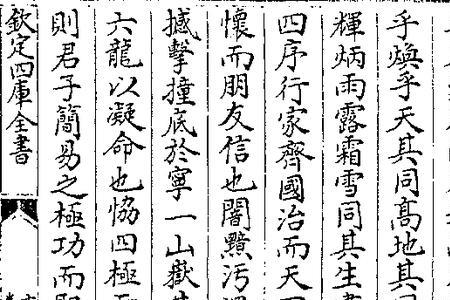 乎煥乎天其同髙地其同
輝炳雨露霜雪同其生
四序行家齊國治而天
懷而朋友信也闇黮污
撼擊撞底於寧一山嶽
六龍以凝命也恊四極
則君子簡易之極功而
欽定四庫全書